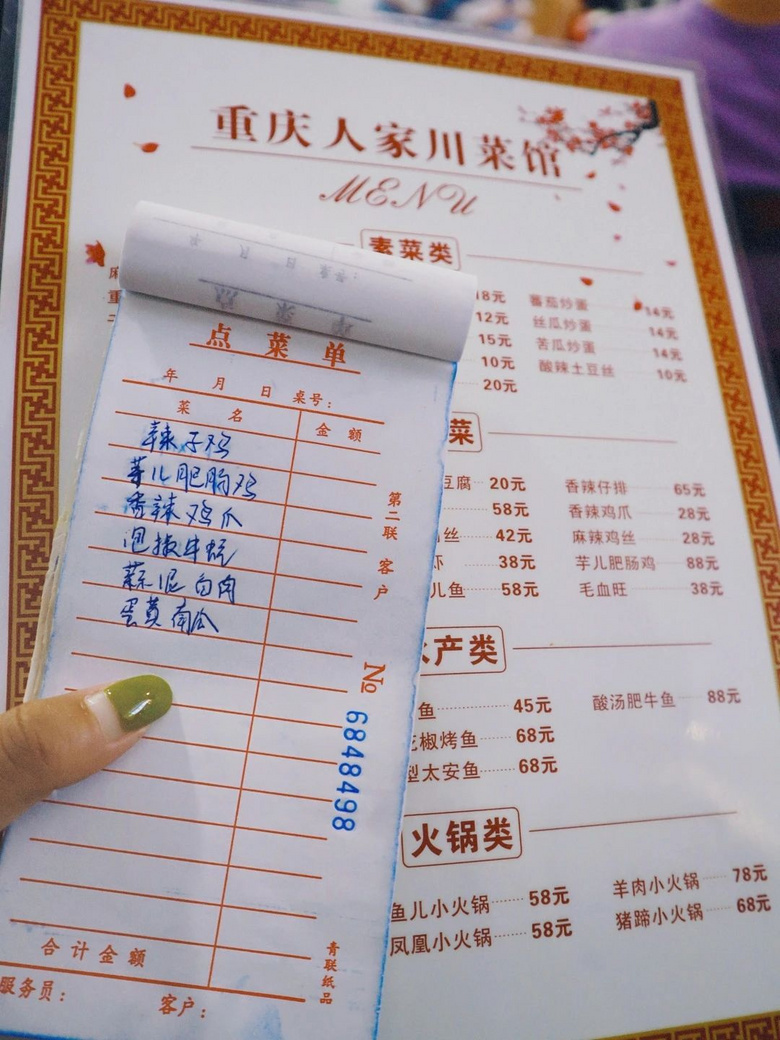 重庆人家川菜馆
MENU
素菜类
18元 蕃茄炒蛋 14元
12元 丝瓜炒蛋 14元
15元 苦瓜炒蛋 14元
10元 酸辣土豆丝 10元
20元
菜
豆腐 20元 香辣仔排 65元
58元 香辣鸡爪 28元
丝 42元 麻辣鸡丝 28元
虾 38元 芋儿肥肠鸡 88元
儿鱼 58元 毛血旺 38元
水产类
鱼 45元 酸汤肥牛鱼 88元
花椒烤鱼 68元
型太安鱼 68元
火锅类
鱼儿小火锅 58元 羊肉小火锅 78元
凤凰小火锅 58元 猪蹄小火锅 68元
点菜单
年 月 日 桌号：
菜名 金额
辣子鸡
芋儿肥肠鸡
香辣鸡爪
泡椒牛蛙
蒜泥白肉
蛋黄南瓜
第二联 客户
No 6848498
合计金额
青联纸品
服务员： 客户：